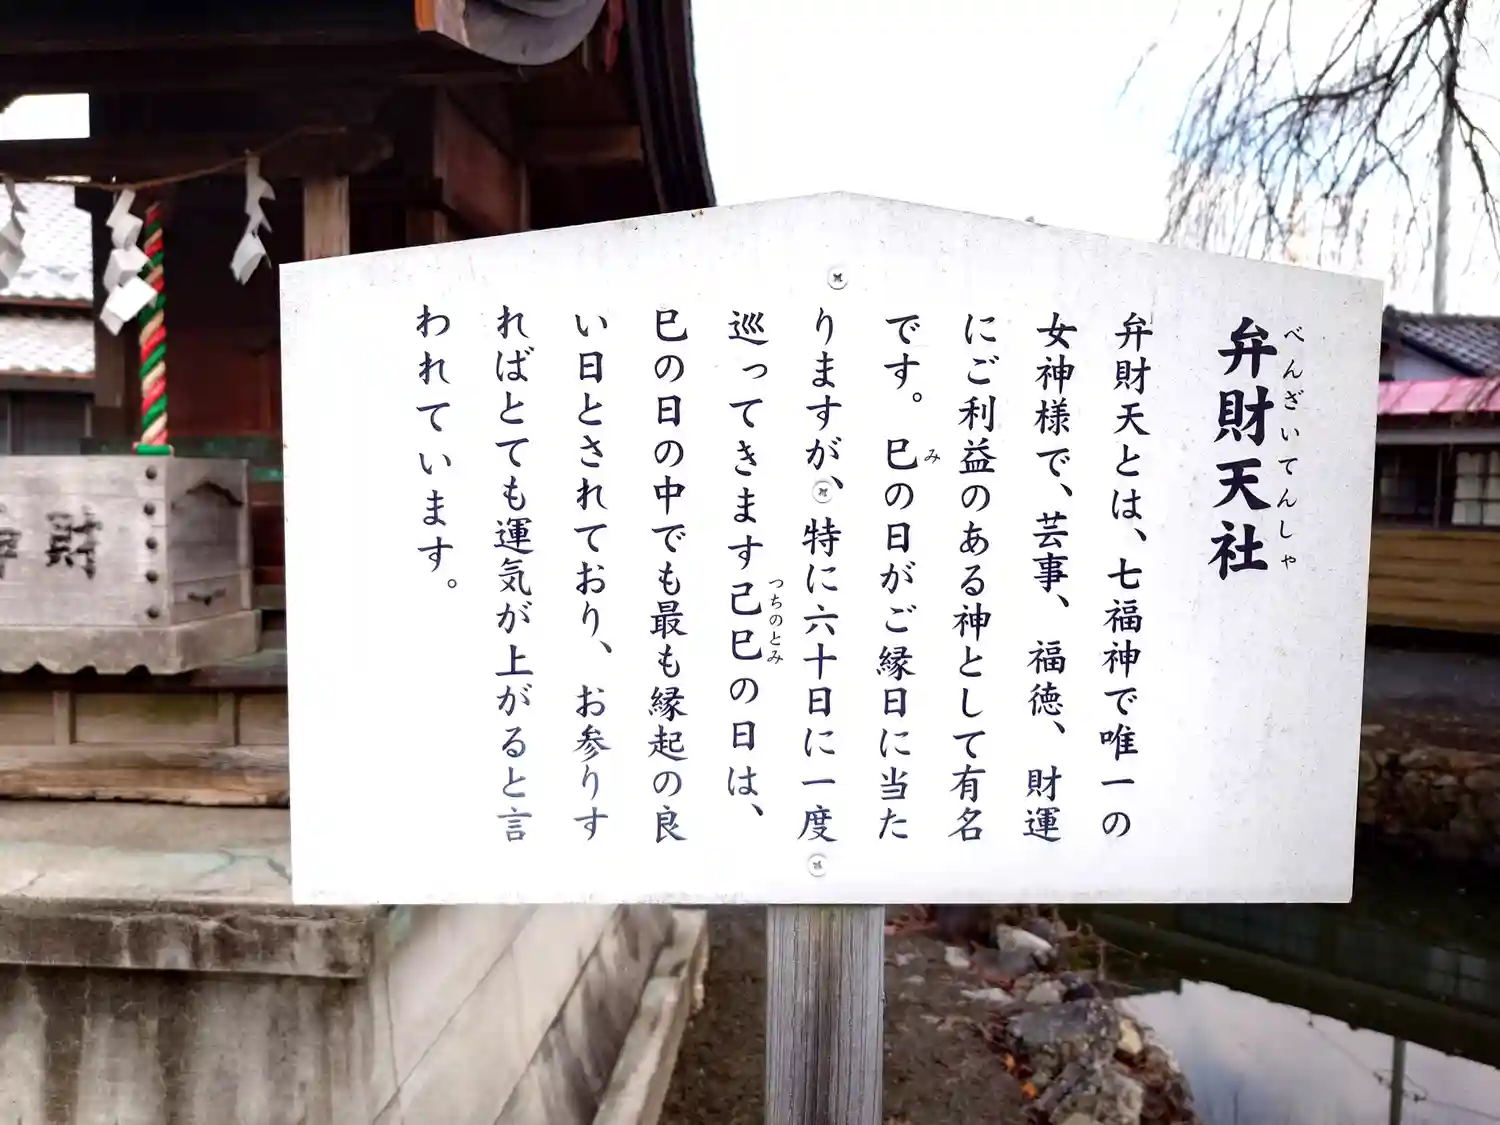 弁財天社
べんざいてんしゃ
弁財天とは、七福神で唯一の
女神様で、芸事、福徳、財運
にご利益のある神として有名
です。巳の日がご縁日に当た
み
りますが、特に六十日に一度
巡ってきます己巳の日は、
つちのとみ
巳の日の中でも最も縁起の良
い日とされており、お参りす
ればとても運気が上がると言
われています。
財